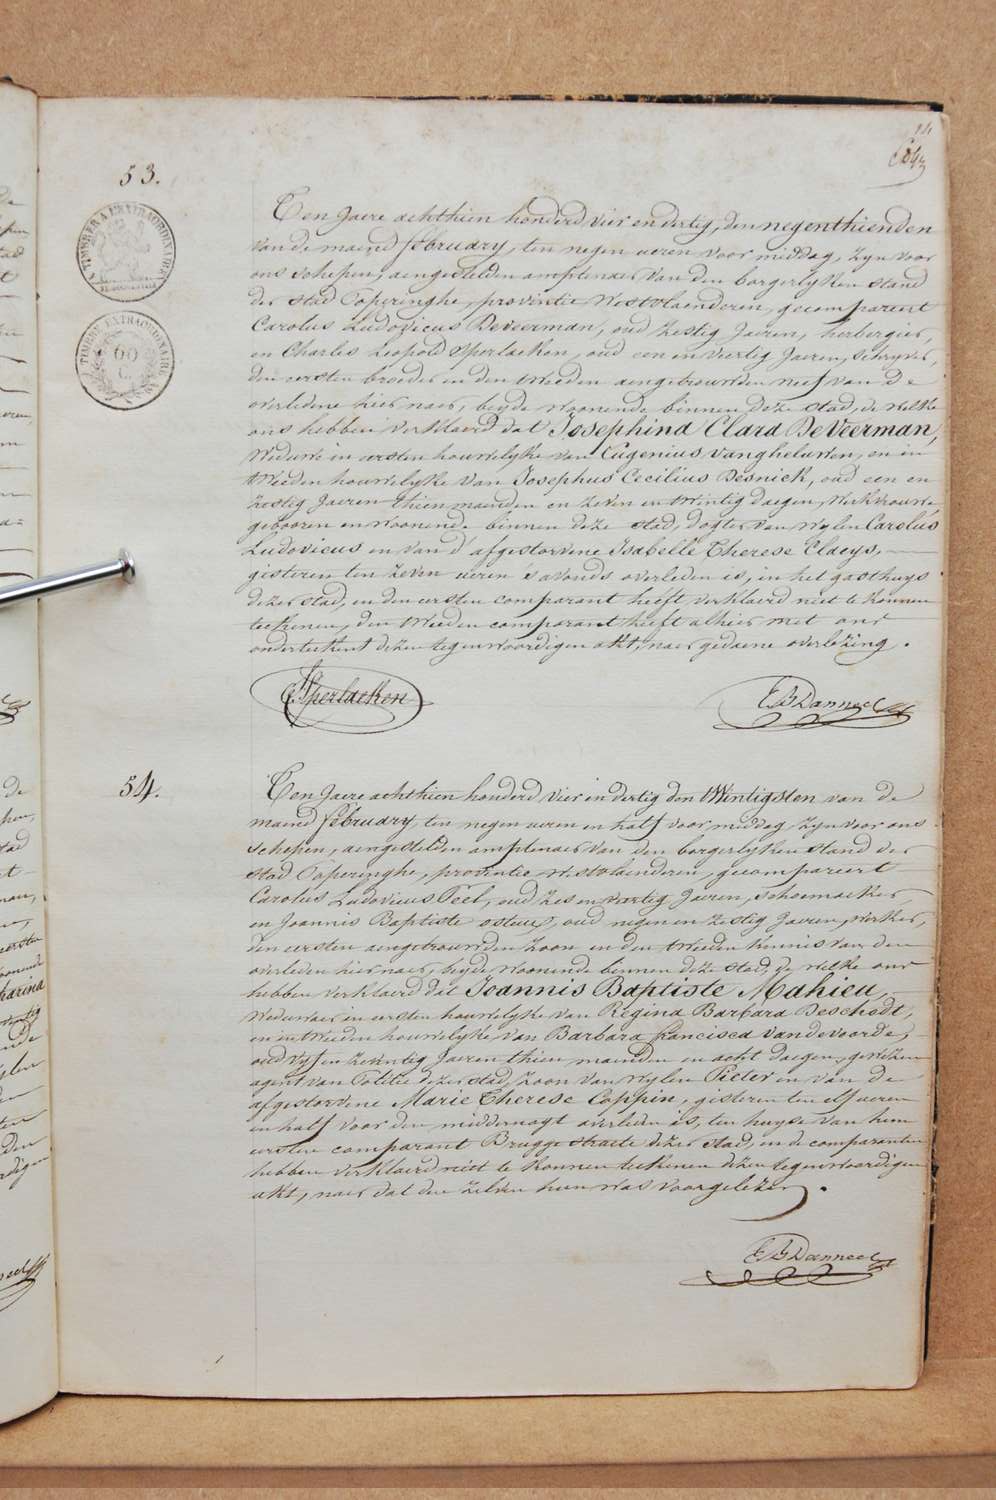 14
53.
TIMBRE EXTRAORDINAIRE
60
C.
Ten Jaere achthien honderd vier en dertig, den negenthienden
van de maend february, ten negen ueren voor middag, zyn voor
ons schepen, aengestelden amptenaer van den borgerlyken stand
der stad Poperinghe, provintie Westvlaenderen, gecompareert
Carolus Ludovicus Deveerman, oud zestig Jaeren, herbergier,
en Charles Leopold Sperlaeken, oud een en viertig Jaeren, schryver,
den eersten broeder en den tweeden aengetrouwden neef van de
overledene hier naer, beyde woonende binnen deze stad, de welke
ons hebben verklaerd dat Josephina Clara DeVeerman,
Weduwe in eersten houwelyke van Eugenius vangheluwen, en in
tweeden houwelyke van Josephus Cecilius Desnick, oud een en
zestig Jaeren thien maenden en zeven en twintig daegen, Werkvrouwe
gebooren en woonende binnen deze stad, dogter van wylen Carolus
Ludovicus en van d'afgestorvene Isabelle Therese Claeys,
gisteren ten zeven ueren 's avonds overleden is, in het gasthuys
dezer stad, en den eersten comparant heeft verklaerd niet te konnen
teekenen, den tweeden comparant heeft alhier met ons
onderteekent dezen tegenwoordigen akt, naer gedaene overlezing.
Sperlaeken
E B Danneel
54.
Ten Jaere achthien honderd vier en dertig den twintigsten van de
maend february, ten negen ueren en half voor middag, zyn voor ons
schepen, aengestelden amptenaer van den borgerlyken stand der
stad Poperinghe, provintie Westvlaenderen, gecompareert
Carolus Ludovicus Peel, oud zes en viertig Jaeren, schoemaeker,
en Joannis Baptiste osteux, oud negen en zestig Jaeren, werker,
den eersten aengetrouwden zoon en den tweeden kennis van den
overleden hier naer, beyde woonende binnen deze stad, de welke ons
hebben verklaerd dat Joannis Baptiste Mahieu,
Weduwaer in eersten houwelyke van Regina Barbara Deschodt,
en in tweeden houwelyke van Barbara francisca vandevoorde,
oud vyf en zeventig Jaeren thien maenden en acht daegen, gewezen
agent van Politie dezer stad, zoon van wylen Pieter en van de
afgestorvene Marie Therese Coppin, gisteren ten elf ueren
en half voor den middernagt overleden is, ten huyse van hem
eersten comparant Brugge straete dezer stad, en de comparanten
hebben verklaerd niet te konnen teekenen dezen tegenwoordigen
akt, naer dat den zelven hun was voorgelezen.
E B Danneel